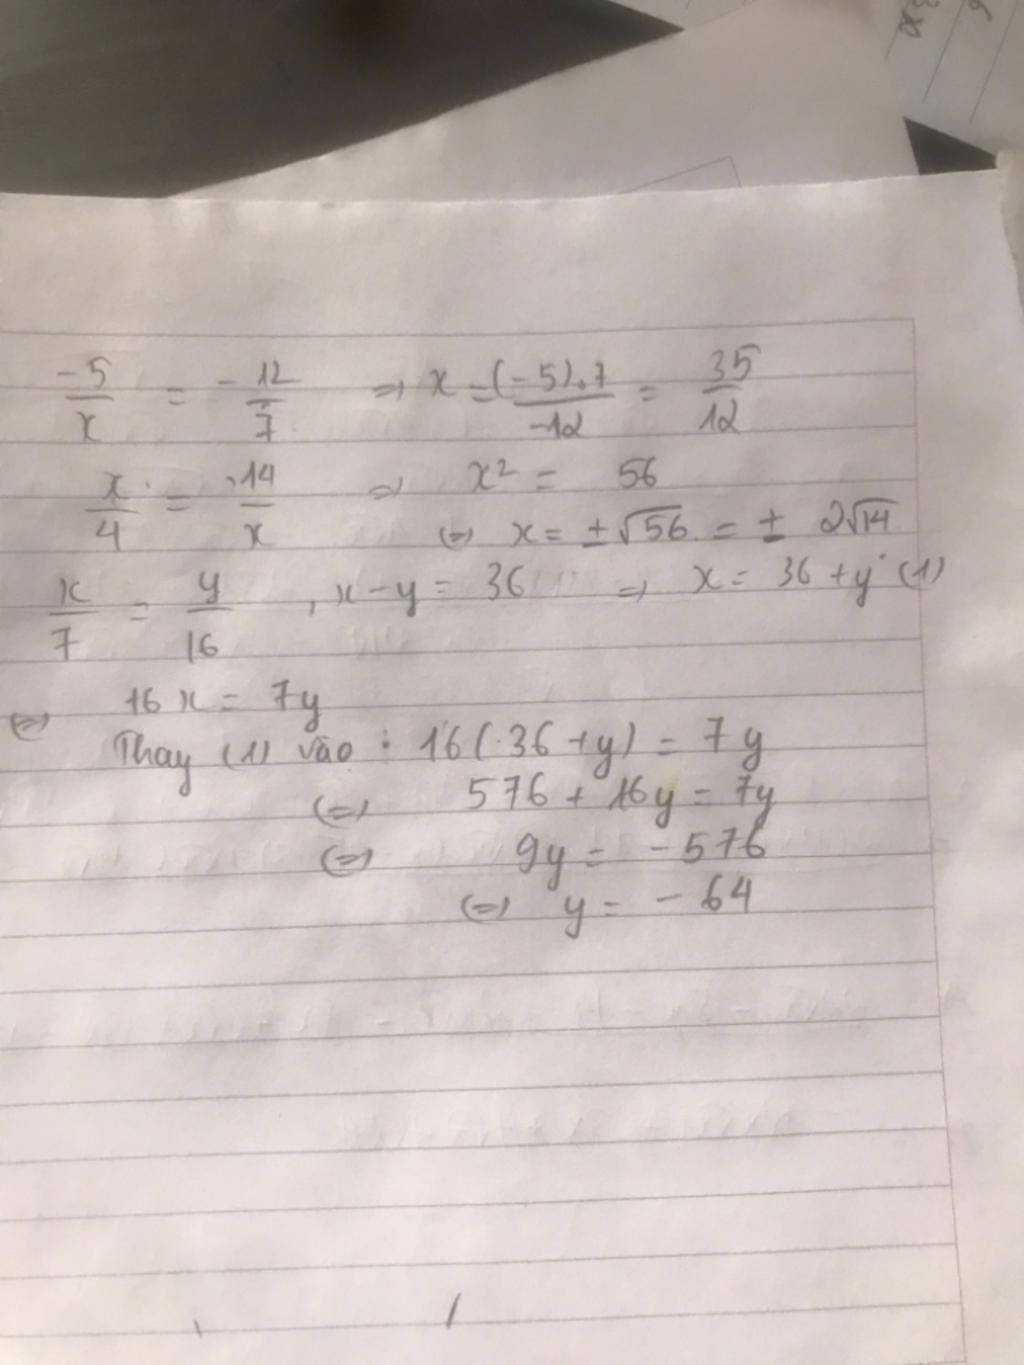 -5/x = -12/7 => x = (-5).7/-12 = 35/12
x/4 = 14/x => x² = 56
(=) x = ±√56 = ± 2√14
x/7 = y/16 , x-y = 36 => x = 36 + y (1)
(=) 16x = 7y
Thay (1) vào : 16(36+y) = 7y
(=) 576 + 16y = 7y
(=) 9y = -576
(=) y = -64